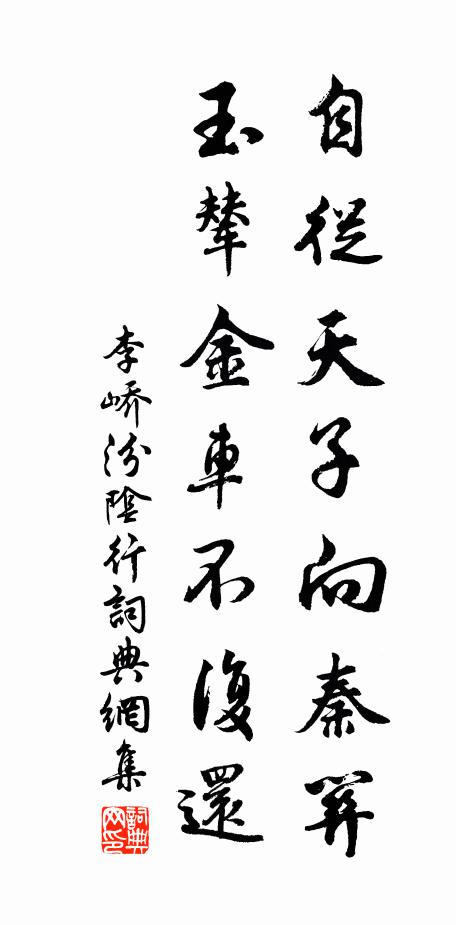 自從天子向秦關
玉輦金車不復還
李嶠汾陰行詞典網集
詞典網印